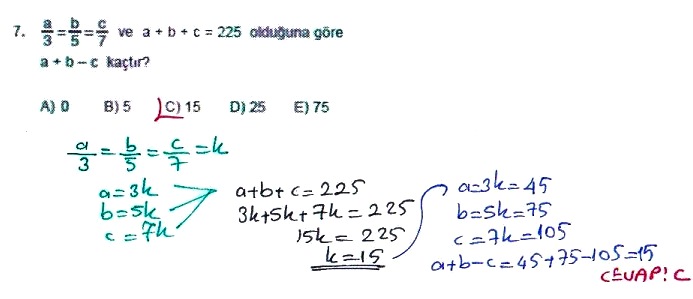 7. a/3 = b/5 = c/7 ve a + b + c = 225 olduğuna göre
a + b – c kaçtır?
A) 0 B) 5 C) 15 D) 25 E) 75
a/3 = b/5 = c/7 = k
a=3k
b=5k
c=7k
a+b+c=225
3k+5k+7k=225
15k=225
k=15
a=3k=45
b=5k=75
c=7k=105
a+b-c=45+75-105=15
CEVAP: C